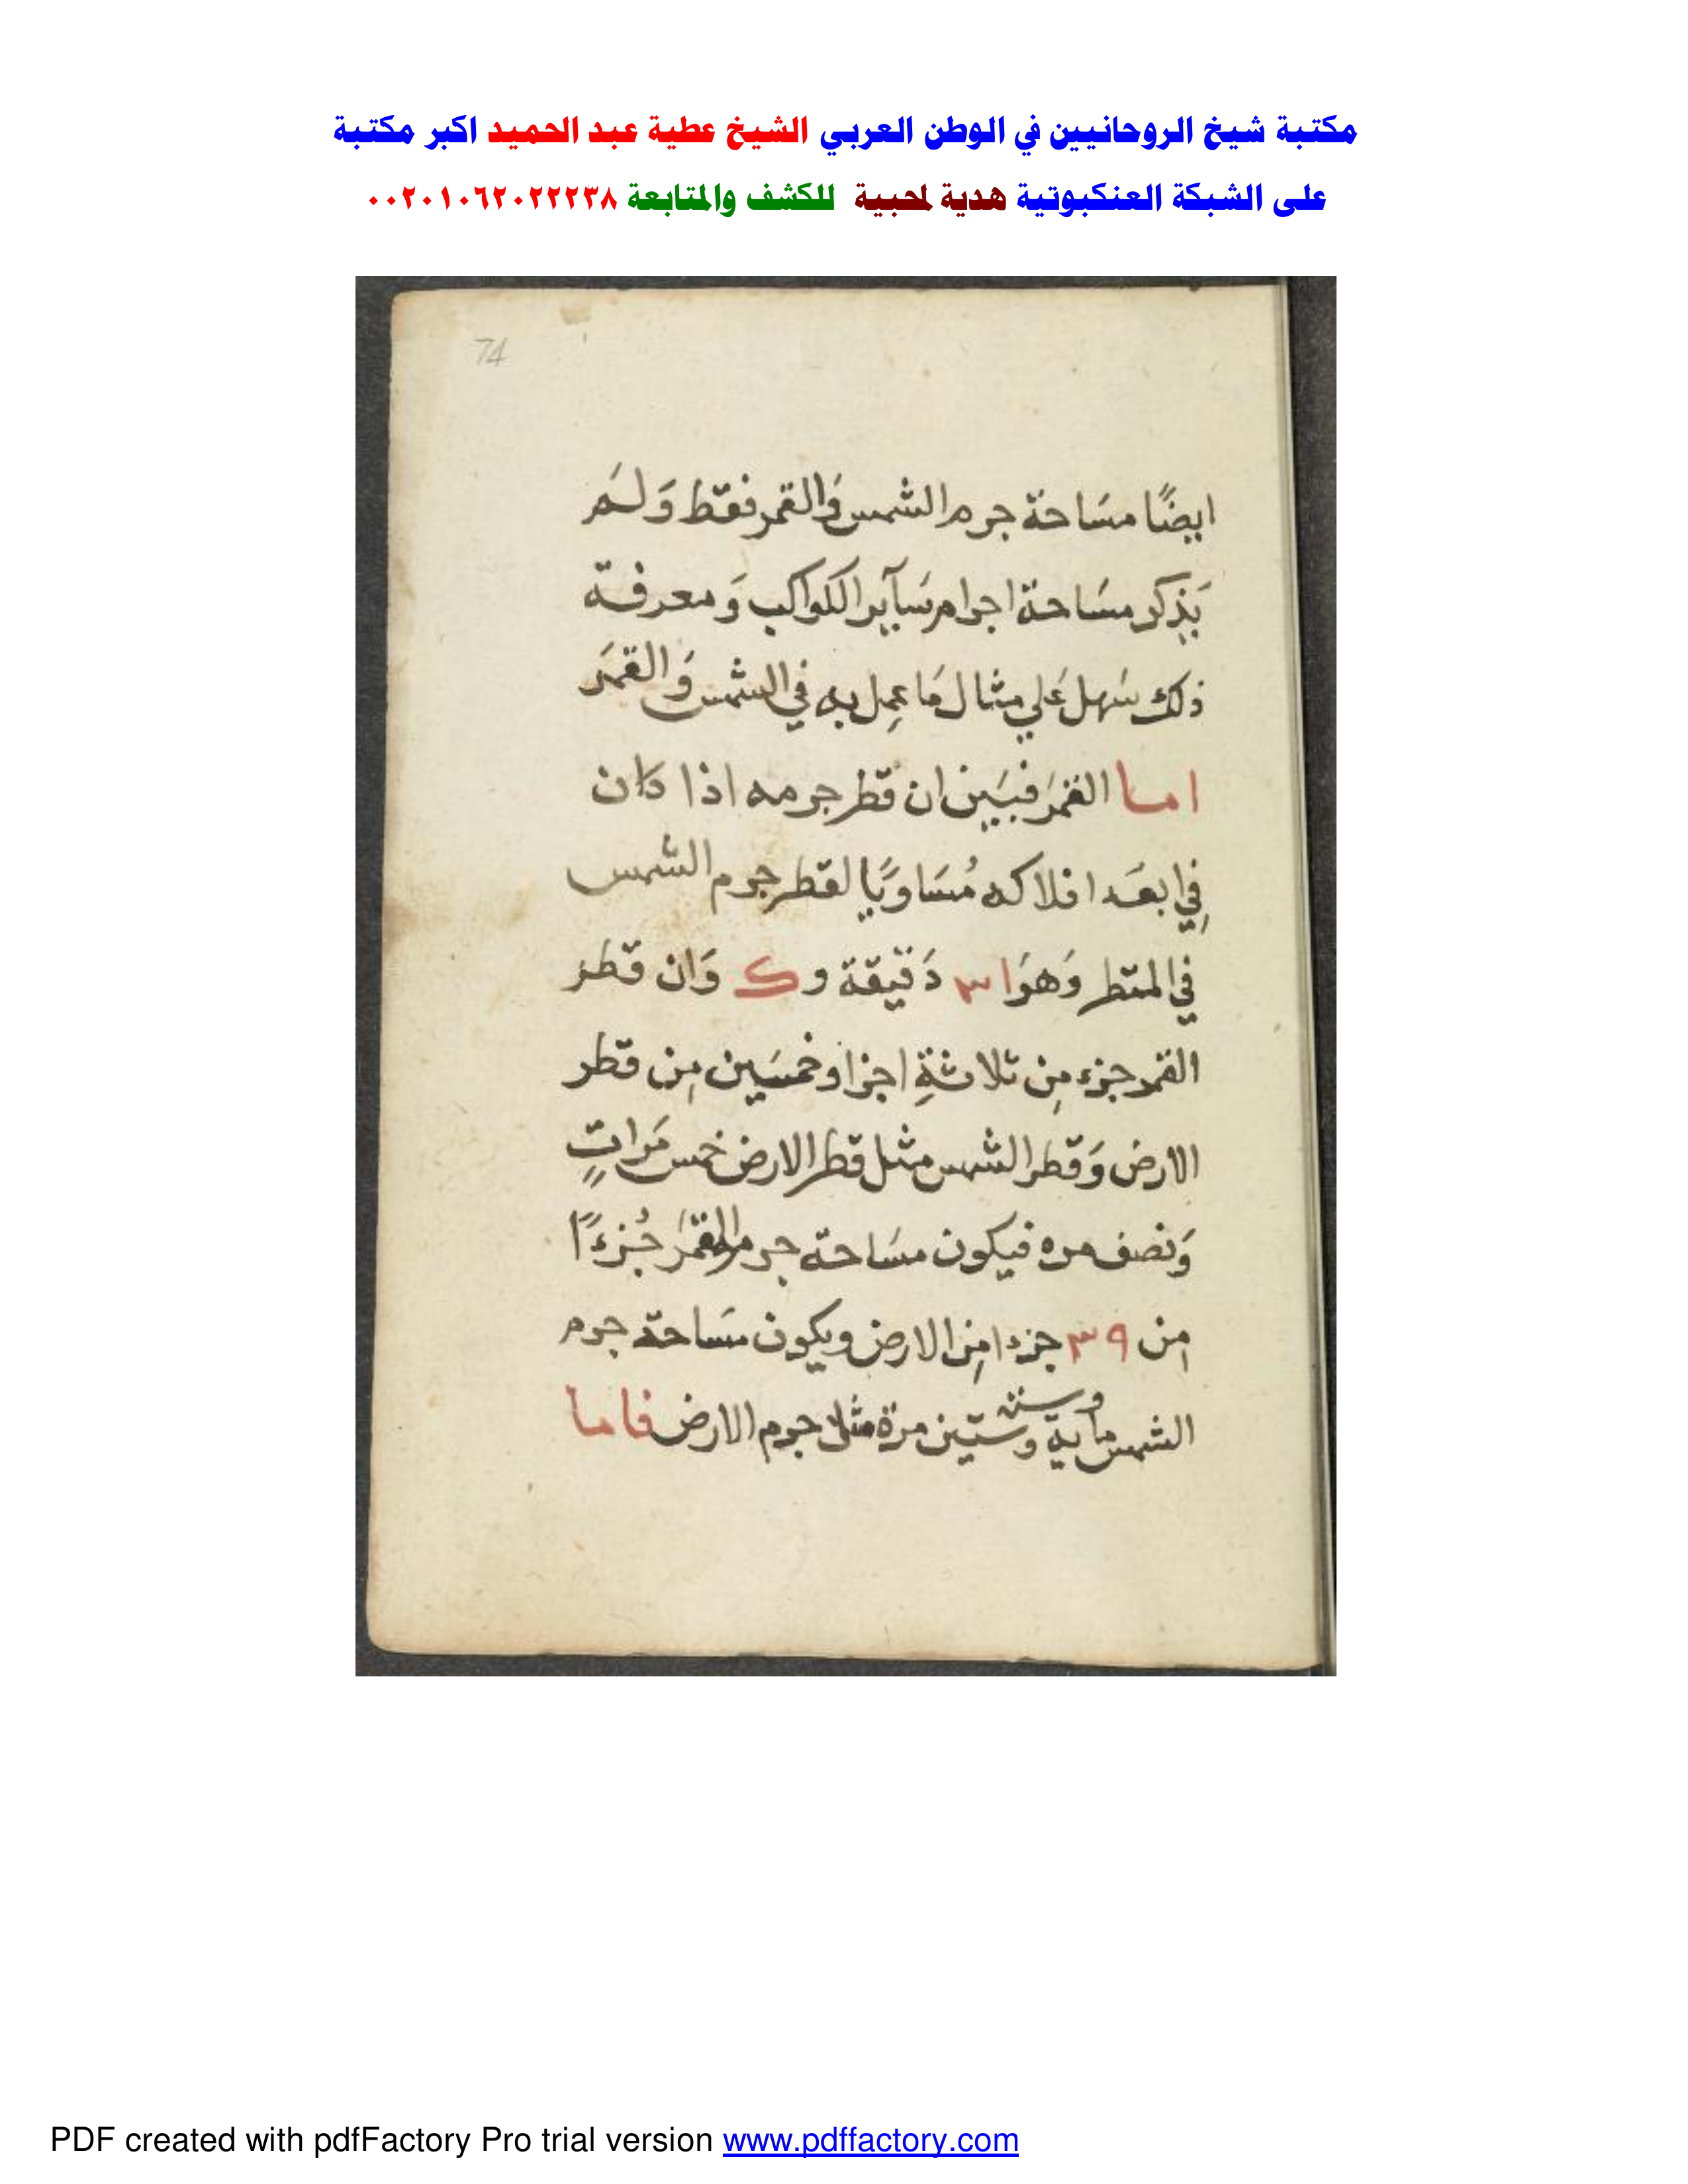 مكتبة شيخ الروحانيين في الوطن العربي الشيخ عطية عبد الحميد اكبر مكتبة
على الشبكة العنكبوتية هدية لمحبيه للكشف والمتابعة ٠٠٢٠١٠٦٢٠٢٢٢٣٨
74
ايضًا مسَاحة جرم الشمس وَالقمر فقط وَلم
يَذكر مسَاحة اجرام سَآير الكواكب وَمعرفة
ذلك سَهل عَلي مثال مَا عِمل به في الشمس وَالقمَر
اما القمَر فبيَين ان قطر جرمه اذا كان
فِي ابعَد افلاكه مُسَاويًا لقطر جرم الشمس
في المنظر وَهوَ ٣١ دَقيقة وك وَان قطر
القمر جزء مِن ثلاثةِ اجزا وخمسَين مِن قطر
الارض وَقطر الشمس مثل قطر الارض خمس مَراتٍ
وَنصف مره فيكون مسَاحة جرم القمَر جُزءًا
مِن ٣٩ جزءا مِن الارض ويكون مسَاحة جرم
الشمس ماية وستة وستين مرة مثل جرم الارض فاما
PDF created with pdfFactory Pro trial version www.pdffactory.com